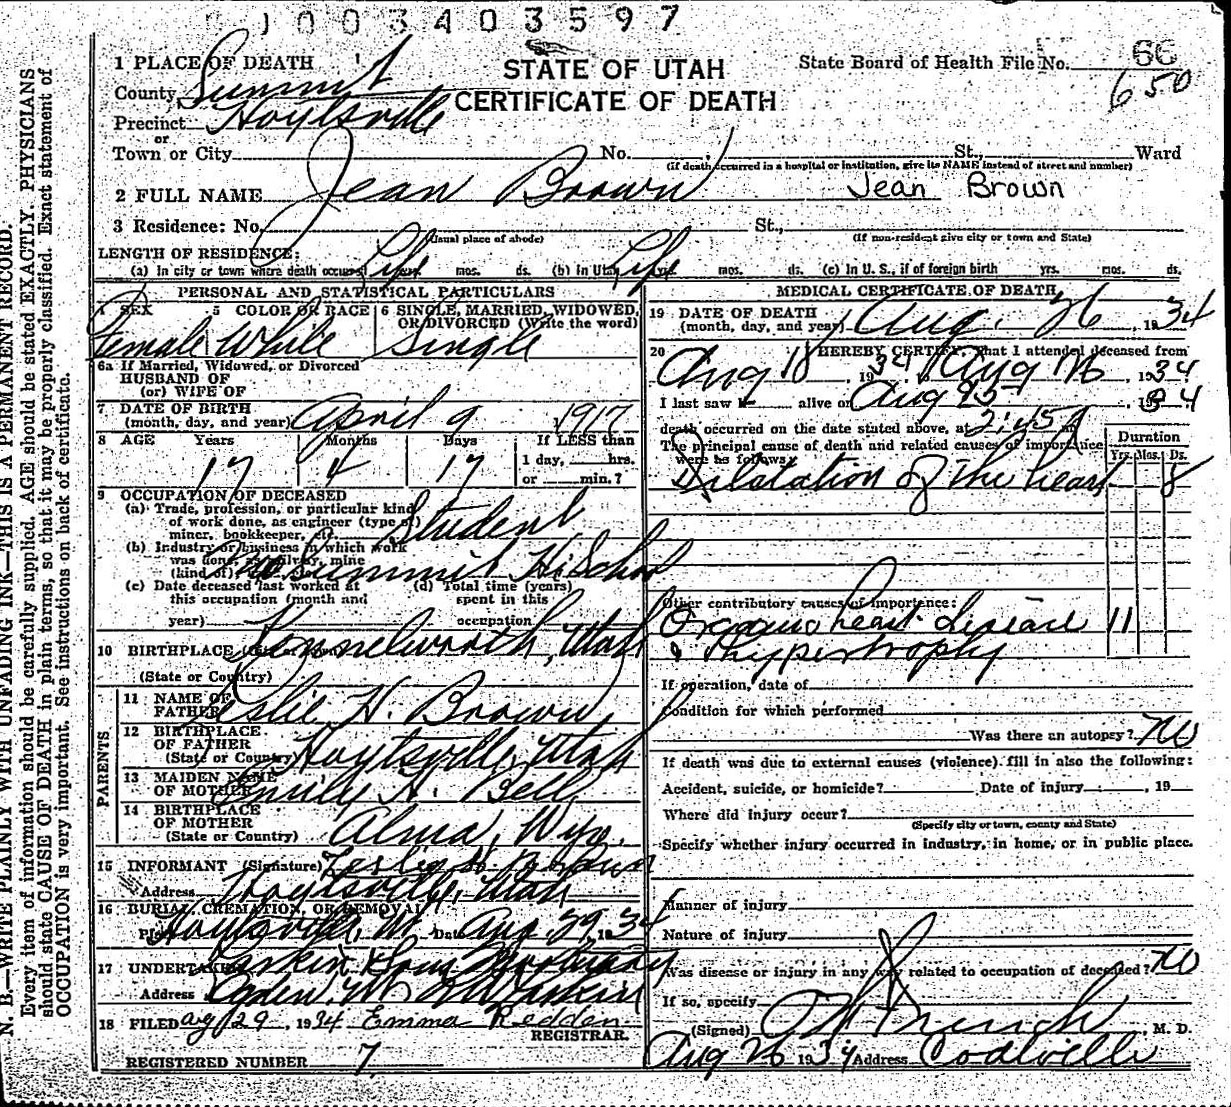 1003403597
1 PLACE OF DEATH
STATE OF UTAH
CERTIFICATE OF DEATH
State Board of Health File No. 66
650
County Summit
Precinct Hoytsville
or
Town or City No. St., Ward
(if death occurred in a hospital or institution, give its NAME instead of street and number)
2 FULL NAME Jean Brown Jean Brown
3 Residence: No. St.,
(Usual place of abode) (If non-resident give city or town and State)
LENGTH OF RESIDENCE:
(a) In city or town where death occurred Life yrs. mos. ds. (b) In Utah Life yrs. mos. ds. (c) In U. S., if of foreign birth yrs. mos. ds.
PERSONAL AND STATISTICAL PARTICULARS
4 SEX 5 COLOR OR RACE 6 SINGLE, MARRIED, WIDOWED, OR DIVORCED (Write the word)
Female White Single
6a If Married, Widowed, or Divorced
HUSBAND OF
(or) WIFE OF
7 DATE OF BIRTH
(month, day, and year) April 9 1917
8 AGE Years Months Days If LESS than
17 4 17 1 day, hrs.
or min.?
9 OCCUPATION OF DECEASED
(a) Trade, profession, or particular kind
of work done, as engineer (type of)
miner, bookkeeper, etc. Student
(b) Industry or business in which work
was done, as railway, mine
(kind of), Summit Hi School
(c) Date deceased last worked at
this occupation (month and
year)
(d) Total time (years)
spent in this
occupation
10 BIRTHPLACE Kennelworth, Utah
(State or Country)
PARENTS
11 NAME OF
FATHER Leslie H. Brown
12 BIRTHPLACE
OF FATHER Hoytsville, Utah
(State or Country)
13 MAIDEN NAME
OF MOTHER Emily A. Bell
14 BIRTHPLACE
OF MOTHER Alma, Wyo.
(State or Country)
15 INFORMANT (Signature) Leslie H. Brown
Address Hoytsville, Utah
16 BURIAL, CREMATION, OR REMOVAL
Place Hoytsville, Ut. Date Aug. 29, 1934
17 UNDERTAKER Larkin & Sons Mortuary
Address Ogden, Ut
18 FILED Aug 29, 1934 Emma Redden
REGISTRAR.
REGISTERED NUMBER 7
MEDICAL CERTIFICATE OF DEATH
19 DATE OF DEATH
(month, day, and year) Aug. 26, 1934
20 I HEREBY CERTIFY, That I attended deceased from
Aug 18, 1934 Aug 26 1934
I last saw h alive on Aug 25 1934
death occurred on the date stated above, at 2:45 A
The principal cause of death and related causes of importance
were as follows:
Duration
Yrs. Mos. Ds.
Dilatation of the heart 8
Other contributory causes of importance:
Organic heart disease 11
& hypertrophy
If operation, date of
Condition for which performed
Was there an autopsy? No
If death was due to external causes (violence) fill in also the following:
Accident, suicide, or homicide? Date of injury , 19
Where did injury occur?
(Specify city or town, county and State)
Specify whether injury occurred in industry, in home, or in public place.
Manner of injury
Nature of injury
Was disease or injury in any way related to occupation of deceased? No
If so, specify
(Signed) M. D.
Aug 26 1934 Address Coalville
N. B.—WRITE PLAINLY WITH UNFADING INK—THIS IS A PERMANENT RECORD.
Every item of information should be carefully supplied. AGE should be stated EXACTLY. PHYSICIANS
should state CAUSE OF DEATH in plain terms, so that it may be properly classified. Exact statement of
OCCUPATION is very important. See instructions on back of certificate.